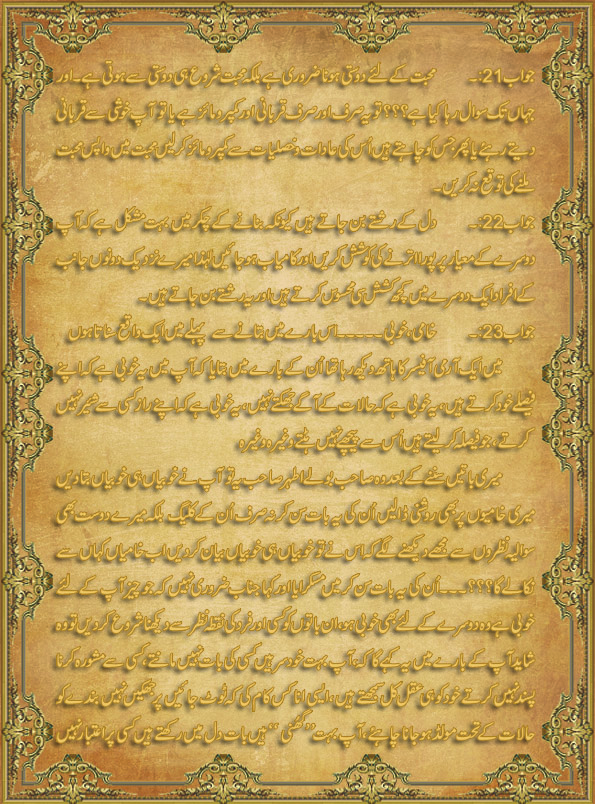 جواب21:۔ محبت کے لئے دوستی ہونا ضروری ہے بلکہ محبت شروع ہی دوستی سے ہوتی ہے۔اور
جہاں تک سوال رہا کیا ہے؟؟؟ تو یہ صرف اور صرف قربانی اور کمپرومائز ہے یا تو آپ خوشی سے قربانی
دیتے رہئے یا پھر جس کو چاہتے ہیں اُس کی عادات و خصلیات سے کمپرومائز کرلیں محبت میں واپس محبت
ملنے کی توقع نہ کریں۔
جواب22:۔ دل کے رشتے بن جاتے ہیں کیونکہ بنانے کے چکر میں بہت مشکل ہے کہ آپ
دوسرے کے معیار پر پورا اترنے کی کوشش کریں اور کامیاب ہو جائیں لہٰذا میرے نزدیک دونوں جانب
کے افراد ایک دوسرے میں کچھ کشش سی محسوس کرتے ہیں اور یہ رشتے بن جاتے ہیں۔
جواب23:۔ خامی،خوبی۔۔۔۔۔اس بارے میں بتانے سے پہلے میں ایک واقع سناتا ہوں
میں ایک آرمی آفیسر کا ہاتھ دیکھ رہا تھا اُن کے بارے میں بتایا کہ آپ میں یہ خوبی ہے کہ اپنے
فیصلے خود کرتے ہیں، یہ خوبی ہے کہ حالات کے آگے جھکتے نہیں، یہ خوبی ہے کہ اپنے راز کسی سے شیئر نہیں
کرتے، جو فیصلہ کر لیتے ہیں اُس سے پیچھے نہیں ہٹتے وغیرہ وغیرہ
میری باتیں سننے کے بعد وہ صاحب بولے اطہر صاحب یہ تو آپ نے خوبیاں ہی خوبیاں بتا دیں
میری خامیوں پر بھی روشنی ڈالیں اُن کی یہ بات سن کر نہ صرف اُن کے کلیگ بلکہ میرے دوست بھی
سوالیہ نظروں سے مجھے دیکھنے لگے کہ اس نے تو خوبیاں ہی خوبیاں بیان کر دیں اب خامیاں کہاں سے
نکالے گا؟؟؟۔۔۔اُن کی یہ بات سن کر میں مسکرایا اور کہا جناب ضروری نہیں کہ جو چیز آپ کے لئے
خوبی ہے وہ دوسرے کے لئے بھی خوبی ہو، ان باتوں کو کسی اور فرد کی نقطہ نظر سے دیکھنا شروع کر دیں تو وہ
شاید آپ کے بارے میں یہ کہے گا کہ، آپ بہت خود سر ہیں کسی کی بات نہیں مانتے، کسی سے مشورہ کرنا
پسند نہیں کرتے خود کو ہی عقل کل سمجھتے ہیں، ایسی انا کس کام کی کہ ٹوٹ جائیں پر جھکیں نہیں بندے کو
حالات کے تحت مولڈ ہو جانا چاہئے، آپ بہت ’’گھنی‘‘ ہیں بات دل میں رکھتے ہیں کسی پر اعتبار نہیں